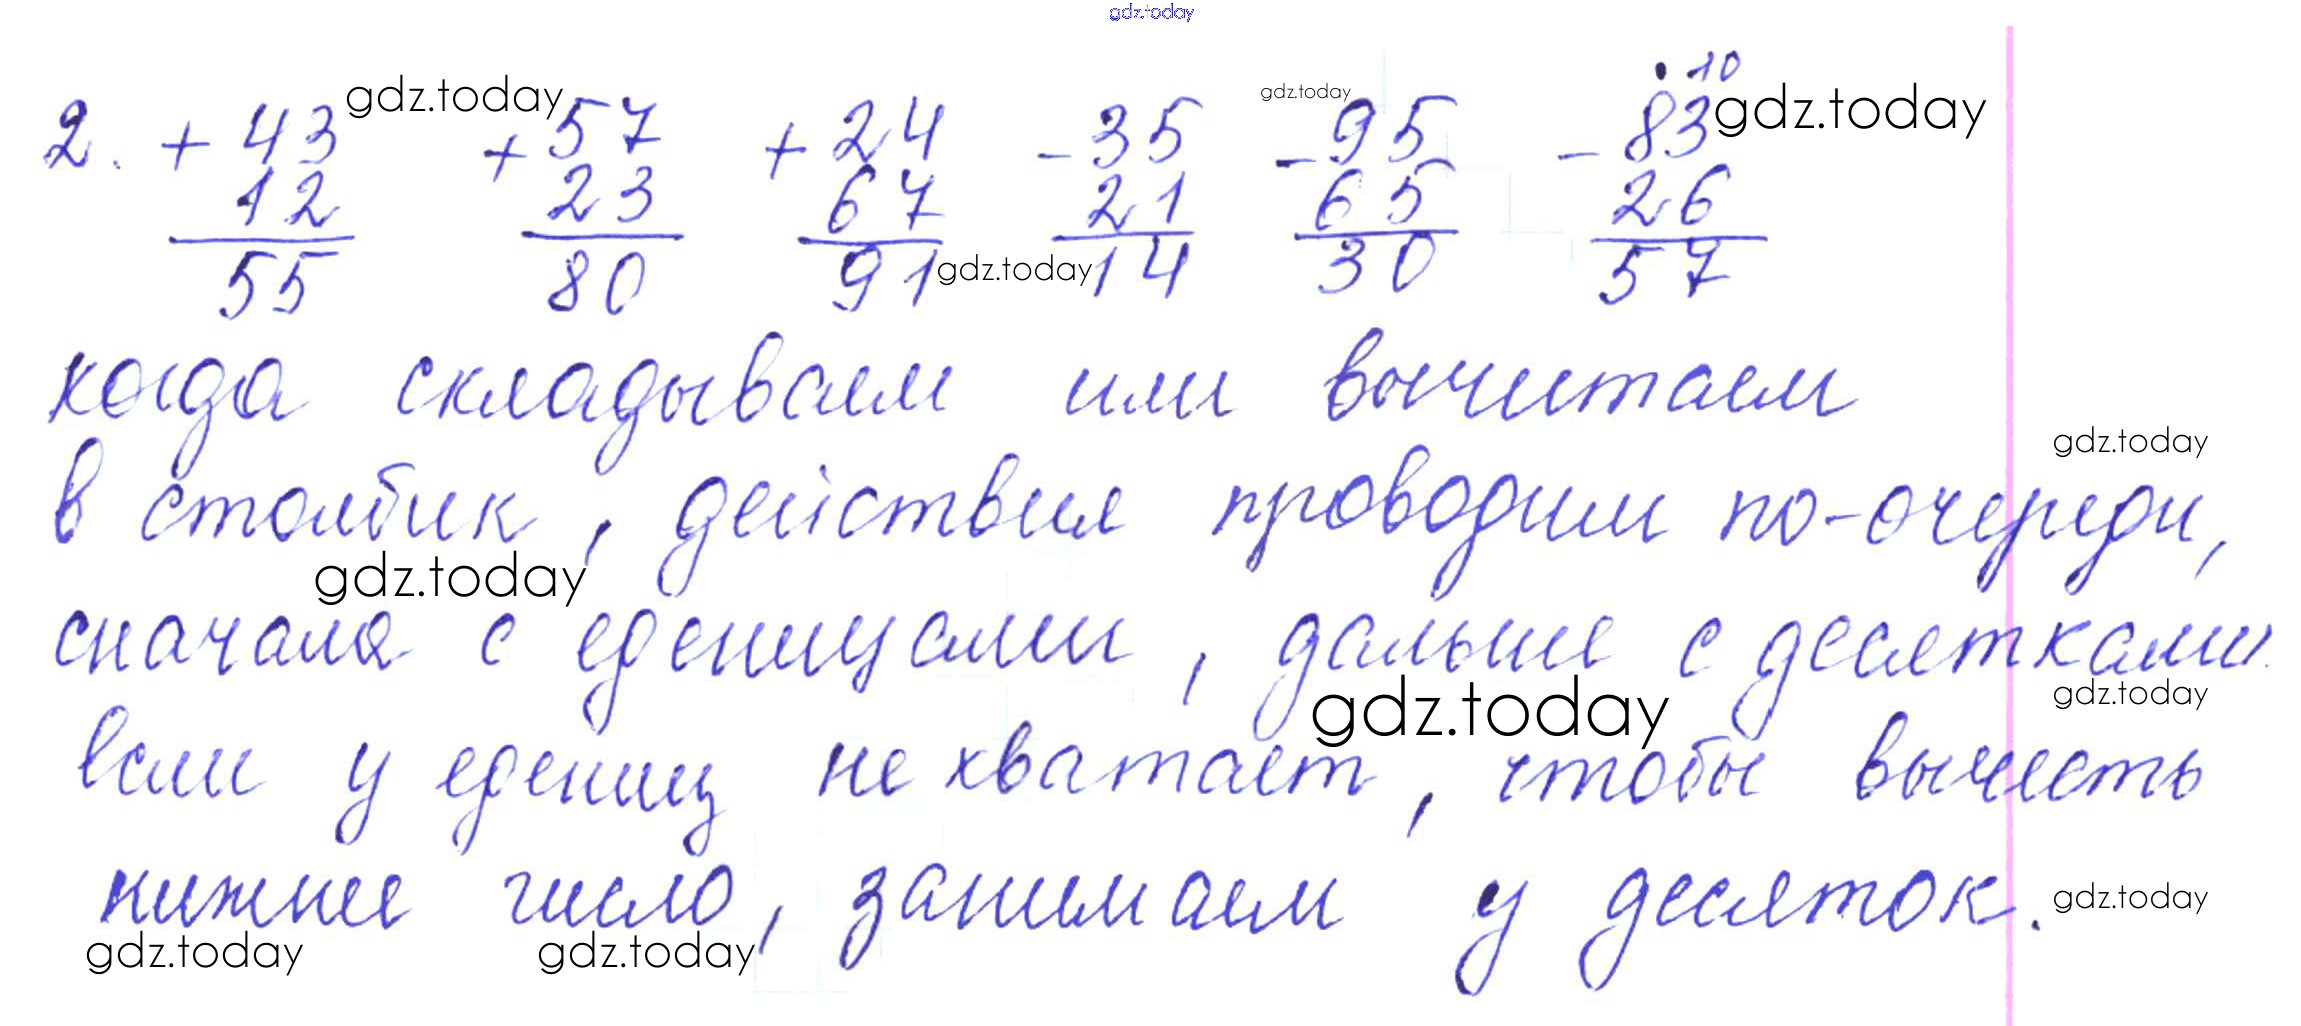 gdz.today
10
2. + 43 gdz.today + 57 + 24 - 35 gdz.today - 95 - 83 gdz.today
12 23 67 21 65 26
55 80 91 gdz.today 14 30 57
когда складываем или вычитаем
gdz.today
в столбик, действия проводим по-очереди,
gdz.today
сначала с еденицами, дальше с десятками
gdz.today gdz.today
если у едениц не хватает, чтобы вычесть
нижнее число, занимаем у десяток. gdz.today
gdz.today gdz.today